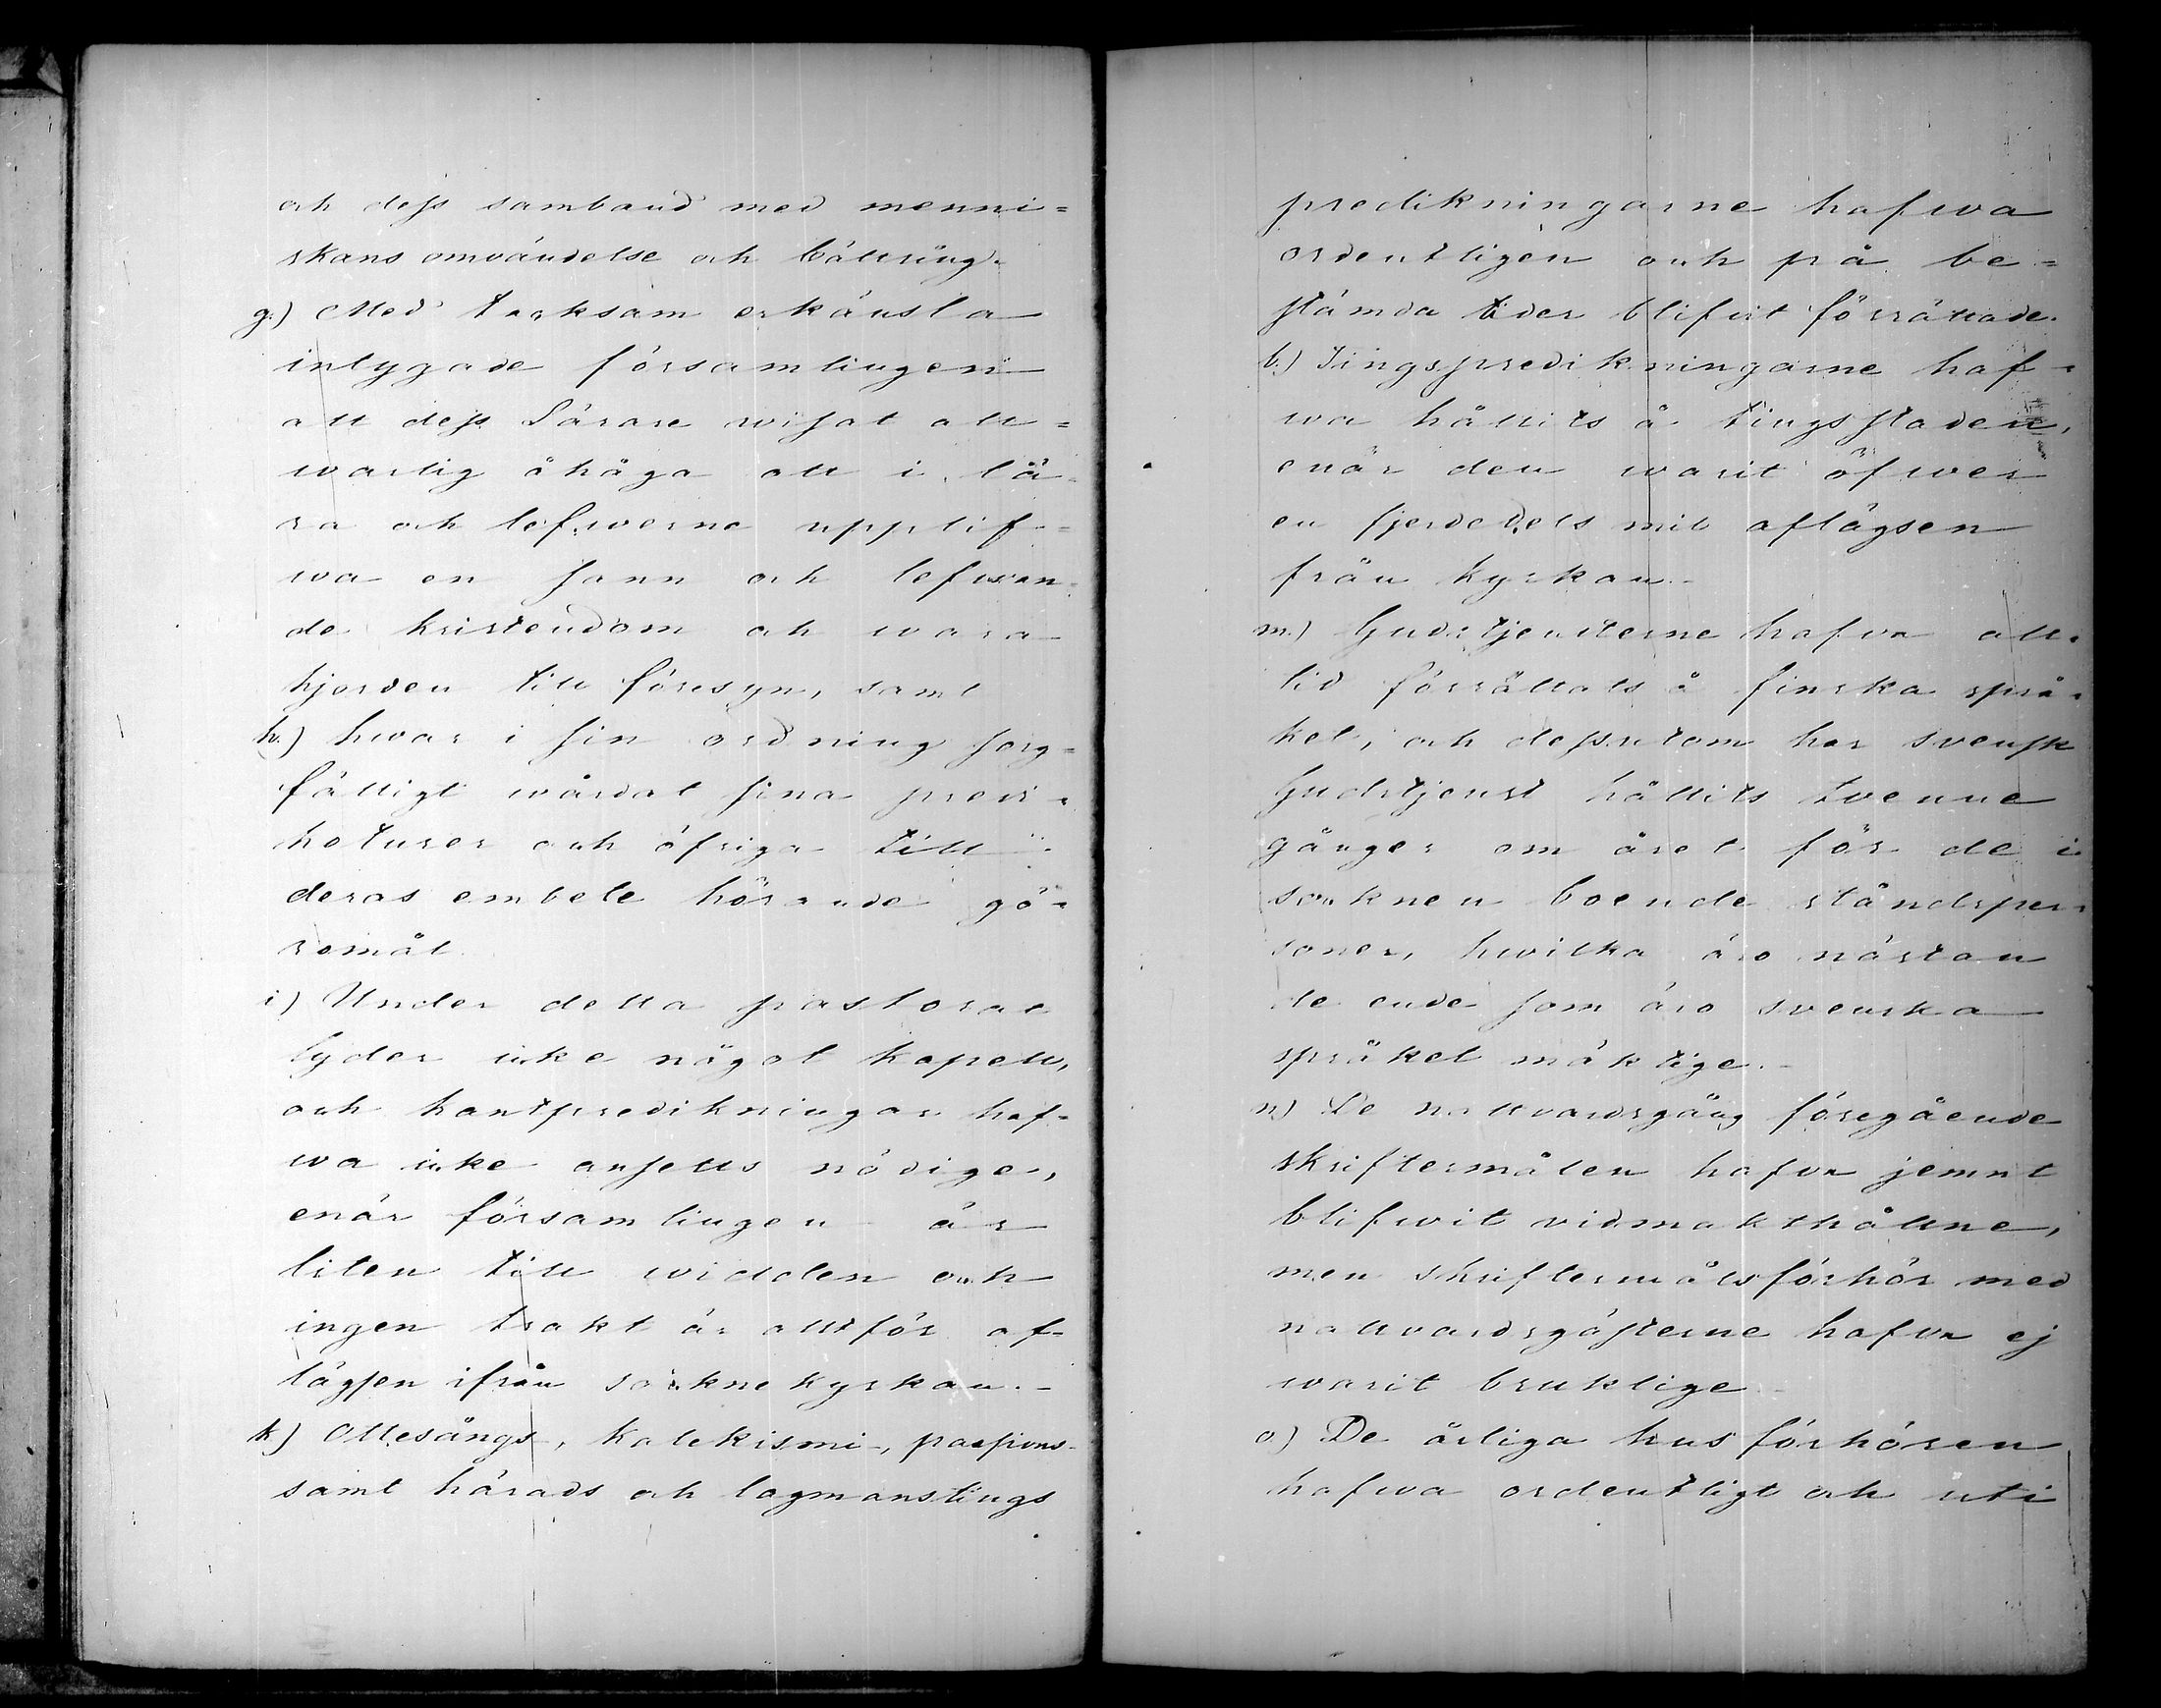 och dess samband med menni=
skans omvändelse och bättring.
g.) Med tacksam erkänsla
intygade församlingen
att dess Lärare wisat all=
warlig åhåga att i lä=
ra och lefwerne upplif=
wa en sann och lefwan=
de kristendom och wara
hjorden till föresyn, samt
h.) hwar i sin ordning sorg=
fälligt wårdat sina predi=
koturer och öfriga till
deras embete hörande gö=
romål.
i) Under detta pastorat
lyder icke något kapell,
och hantpredikningar haf=
wa icke ansetts nödige,
enär församlingen är
liten till widden och
ingen trakt är alltför af=
lägsen ifrån sockne kyrkan.-
k) Ottesångs-, Katekismi-, passions-
samt härads och lagmanstings
predikningarne hafwa
ordentligen och på be=
stämda tider blifvit förrättade.
l.) Tingspredikningarne haf=
wa hållits å tingsstaden,
enär den warit öfwer
en fjerdedels mil aflägsen
från kyrkan.-
m.) Gudstjensterne hafva all=
tid förrättats å finska språ=
ket, och dessutom har svensk
Gudstjenst hållits tvenne
gånger om året för de i
socknen boende ståndsper=
soner, hwilka äro nästan
de ende som äro svenska
språket mäktige.-
n) De nattvardsgång föregående
skriftermålen hafva jemnt
blifwit vidmakthållne,
men skriftermålsförhör med
nattvardsgästerne hafva ej
warit bruklige.-
o) De årliga husförhören
hafwa ordentligt och uti